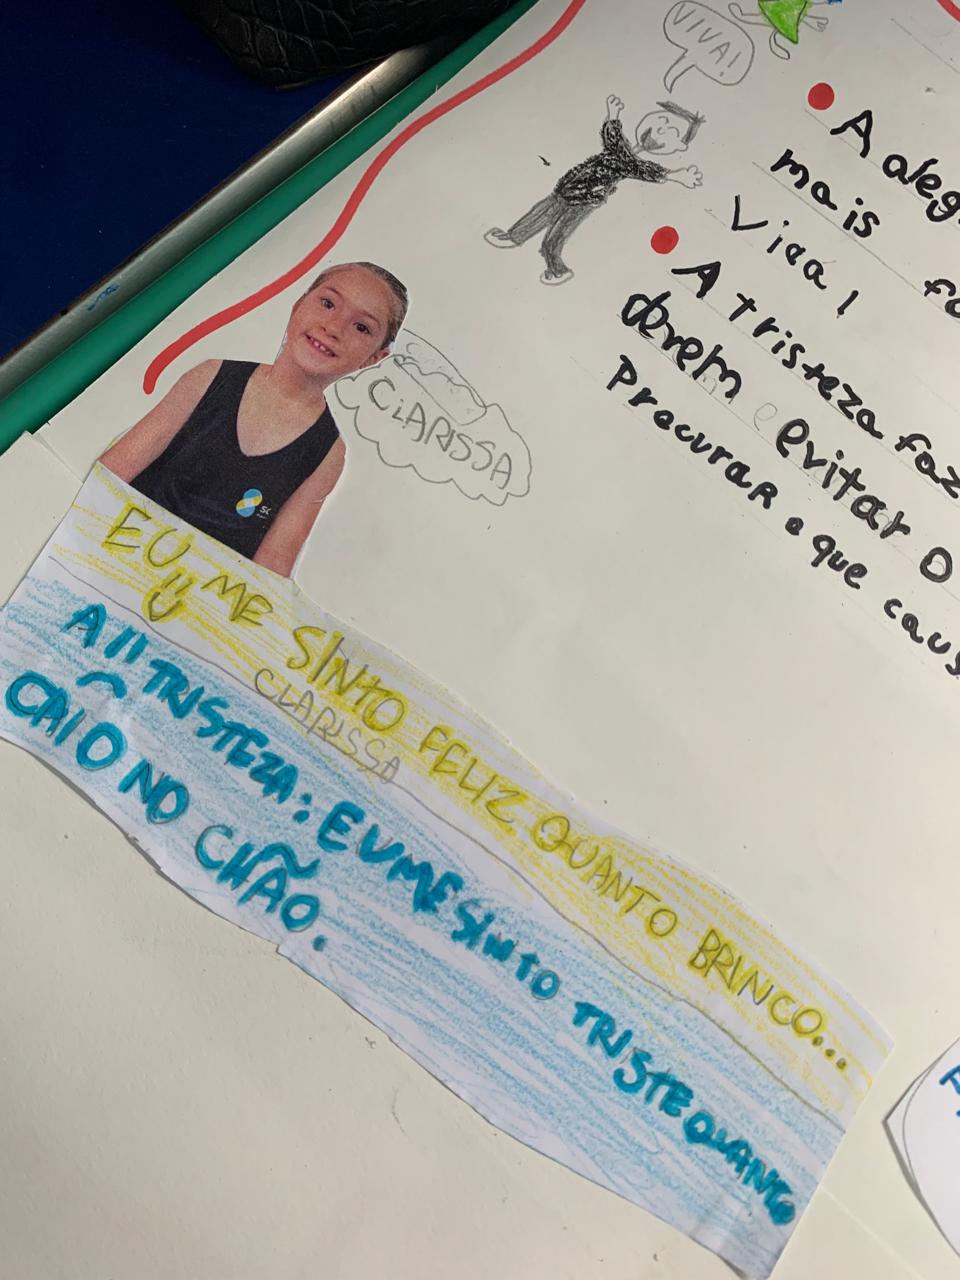 VIVA!
A aleg
mais fo
Viva!
A tristeza faz
devem evitar o
Procurar o que caus
CLARISSA
SC
EU ME SINTO FELIZ QUANTO BRINCO...
CLARISSA
A TRISTEZA: EU ME SINTO TRISTE QUANTO
CAIO NO CHÃO.